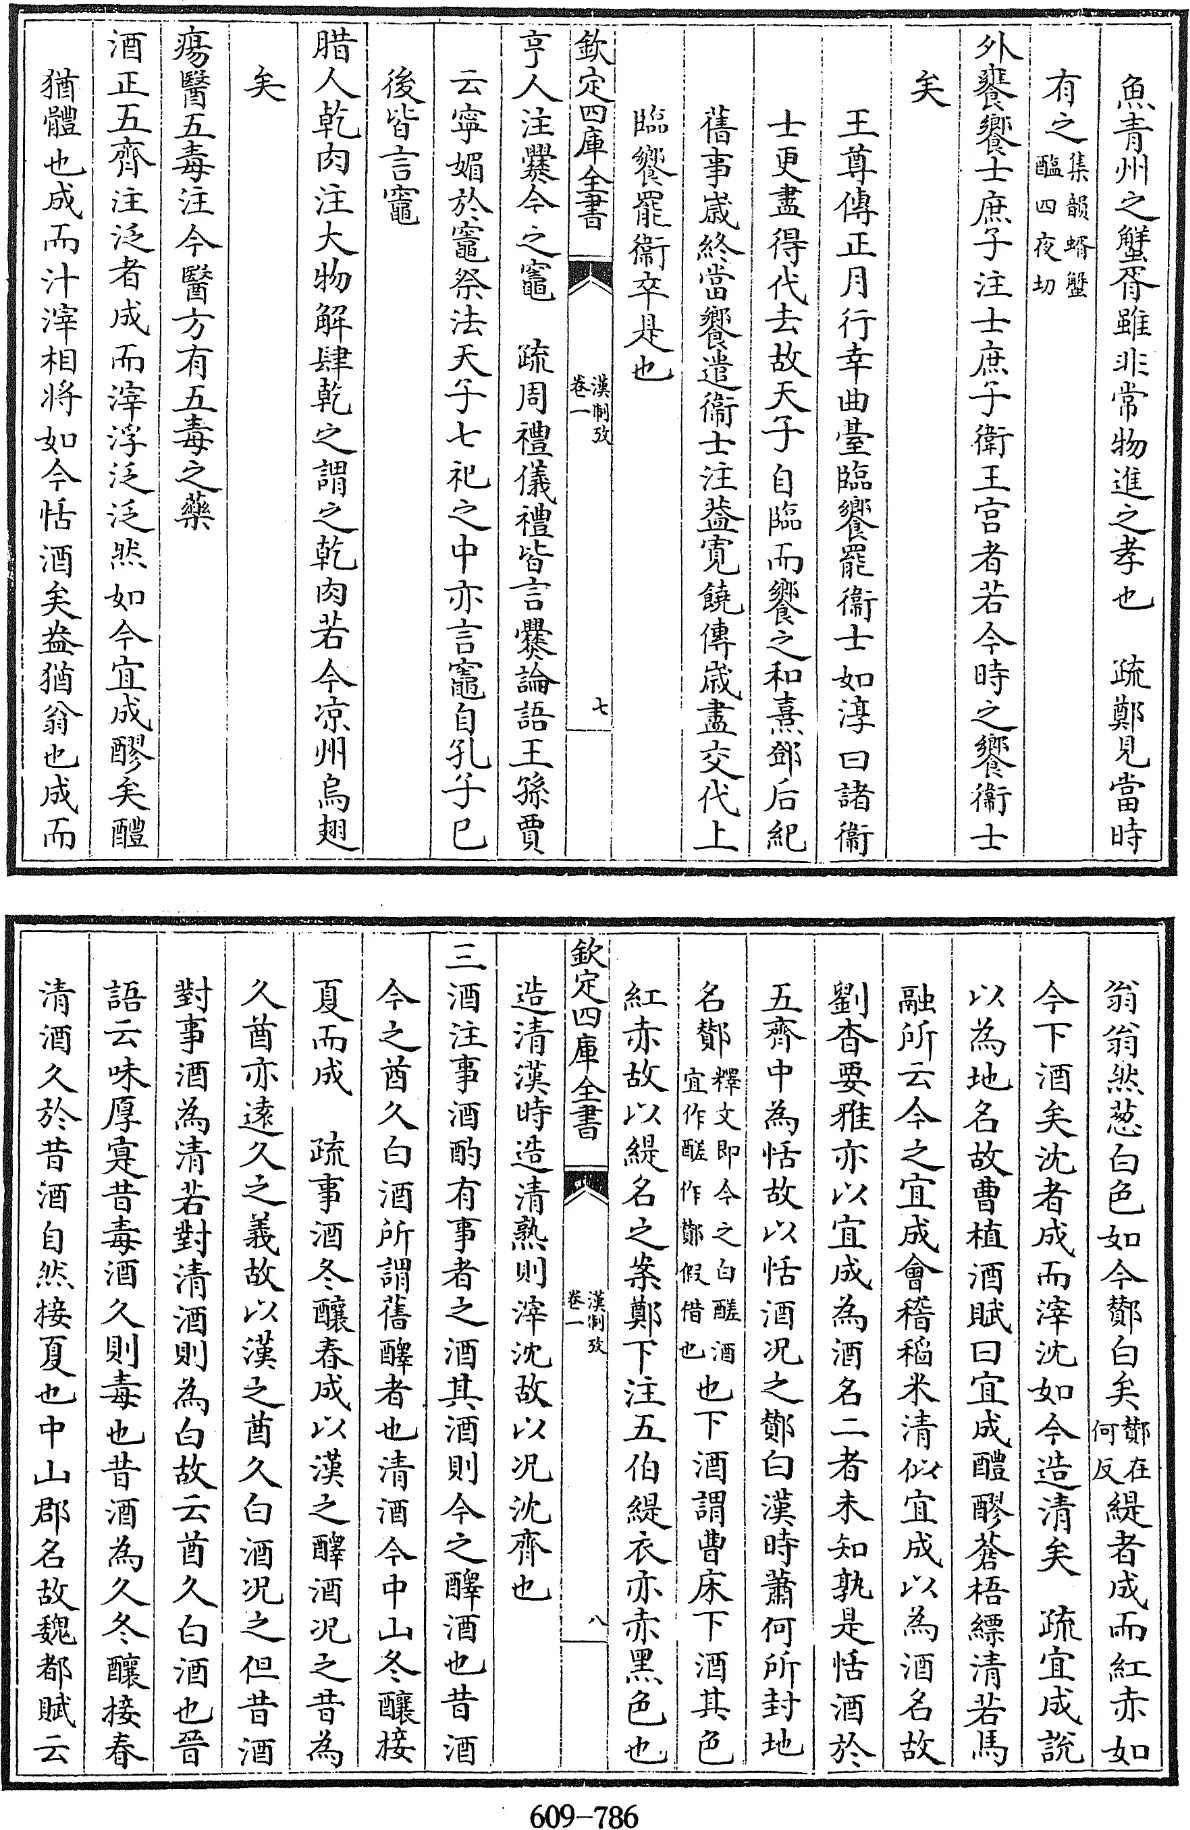 魚青州之蟹胥雖非常物進之孝也　疏鄭見當時
有之集韻蝑蟹䤅四夜切
外饔饗士庶子注士庶子衛王宫者若今時之饗衞士
矣
王尊傳正月行幸曲臺臨饗罷衞士如淳曰諸衞
士更盡得代去故天子自臨而饗之和熹鄧后紀
舊事嵗終當饗遣衞士注葢寛饒傳嵗盡交代上
臨饗罷衞卒是也
欽定四庫全書
漢制攷
卷一
七
亨人注爨今之竈　疏周禮儀禮皆言爨論語王孫賈
云寧媚於竈祭法天子七祀之中亦言竈自孔子已
後皆言竈
腊人乾肉注大物解肆乾之謂之乾肉若今凉州烏翅
矣
瘍醫五毒注今醫方有五毒之藥
酒正五齊注泛者成而滓浮泛泛然如今宜成醪矣醴
猶體也成而汁滓相將如今恬酒矣盎猶翁也成而
翁翁然葱白色如今酇白矣酇在何反緹者成而紅赤如
今下酒矣沈者成而滓沈如今造清矣　疏宜成說
以為地名故曹植酒賦曰宜成醴醪蒼梧縹清若馬
融所云今之宜成會稽稻米清似宜成以為酒名故
劉杳要雅亦以宜成為酒名二者未知孰是恬酒於
五齊中為恬故以恬酒况之酇白漢時蕭何所封地
名酇釋文即今之白醝酒宜作醝作酇假借也也下酒謂曹床下酒其色
紅赤故以緹名之案鄭下注五伯緹衣亦赤黑色也
欽定四庫全書
漢制攷
卷一
八
造清漢時造清熟則滓沈故以况沈齊也
三酒注事酒酌有事者之酒其酒則今之醳酒也昔酒
今之酋久白酒所謂舊醳者也清酒今中山冬釀接
夏而成　疏事酒冬釀春成以漢之醳酒况之昔為
久酋亦逺久之義故以漢之酋久白酒况之但昔酒
對事酒為清若對清酒則為白故云酋久白酒也晉
語云味厚寔昔毒酒久則毒也昔酒為久冬釀接春
清酒久於昔酒自然接夏也中山郡名故魏都賦云
609-786